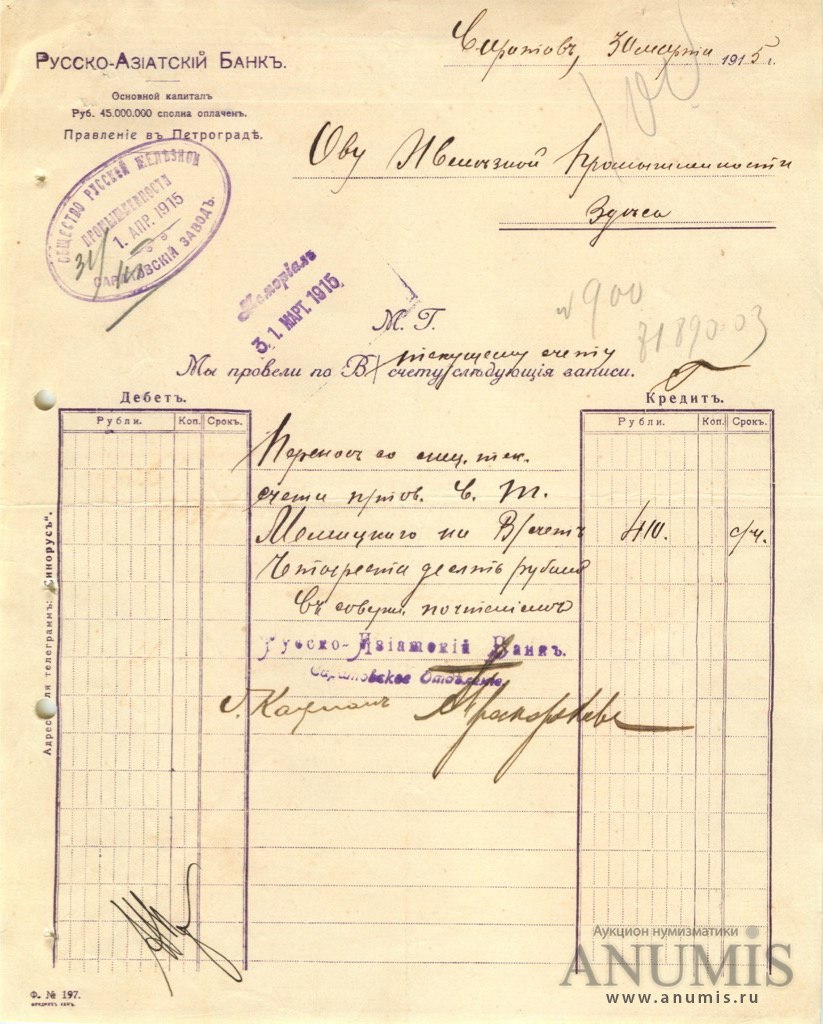 Саратовъ, 30 марта 1915 г.
Русско-Азіатскій Банкъ.
Основной капиталъ
Руб. 45.000.000 сполна оплаченъ.
Правленіе въ Петроградѣ.
100
Ову Желѣзной Промышленности
Здѣсь
ОБЩЕСТВО РУССКОЙ ЖЕЛѢЗНОЙ
ПРОМЫШЛЕННОСТИ
1. АПР. 1915
САРАТОВСКІЙ ЗАВОДЪ.
Меморіалъ
31. МАРТ. 1915
М. Г.
900
71890.03
текущему счету
Мы провели по В/счету слѣдующія записи.
Дебетъ. Кредитъ.
Рубли. Коп. Срокъ. Рубли. Коп. Срокъ.
Переносъ со спец. тек.
счета
С. Т.
на В/счетъ 410. с/ч.
Четыреста десять рублей
Съ соверш. почтеніемъ
Русско-Азіатскій Банкъ.
Саратовское Отдѣленіе.
Адресъ для телеграммъ: „Синорусъ“.
Ф. № 197.
Аукцион нумизматики
ANUMIS
www.anumis.ru